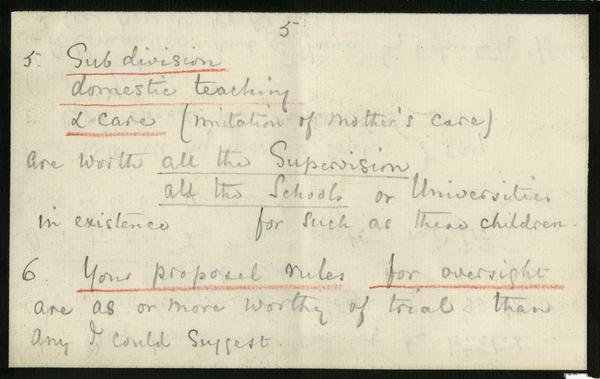 5
5. Subdivision
domestic teaching
& care (imitation of mother's care)
are worth all the Supervision
all the Schools or Universities
in existence for such as these children.
6 Your proposed rules for oversight
are as or more worthy of trial than
any I could suggest.